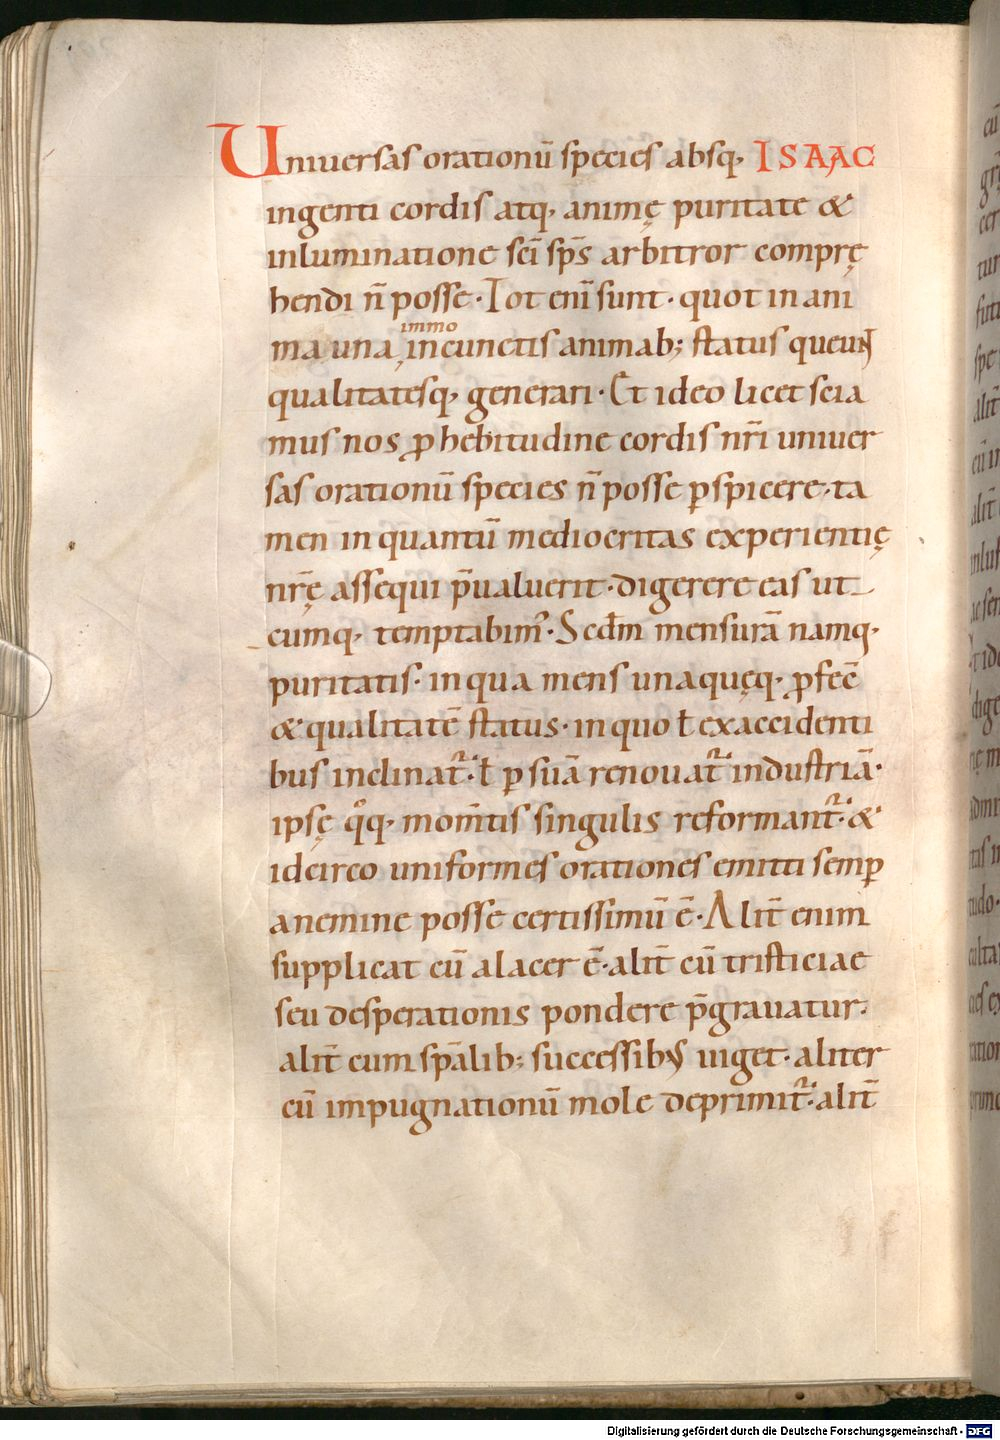 Uniuersas orationū species absq, ISAAC
ingenti cordis atq, animę puritate &
inluminatione sc̄i sp̄s arbitror comprę
hendi n̄ posse · Tot eni͞ sunt · quot in ani
immo
ma una, incunctis animab; status queunt
qualitatesq, generari · Et ideo licet scia
mus nos ꝓ hebitudine cordis nr̄i uniuer
sas orationū species n̄ posse ꝑspicere · ta
men in quantū mediocritas experientię
nr̄ę assequi p̄ualuerit · digerere eas ut
cumq, temptabim᾽ · Scdm̄ mensurā namq,
puritatis · in qua mens unaquęq, ꝓfec̄
& qualitatē status · in quo ł ex accidenti
bus inclinat᷑ · ł ꝑ suā renouat᷑ industriā ·
ipsę qͦq, mom̄tis singulis reformant᷑ · &
idcirco uniformes orationes emitti semꝑ
anemine posse certissimū ē · Alit̄ enim
supplicat cū alacer ē · alit̄ cū tristiciae
seu desperationis pondere p̄grauatur ·
alit̄ cum sp̄alib; successibus uiget · aliter
cū impugnationū mole deprimit᷑ · alit̄
Digitalisierung gefördert durch die Deutsche Forschungsgemeinschaft - DFG